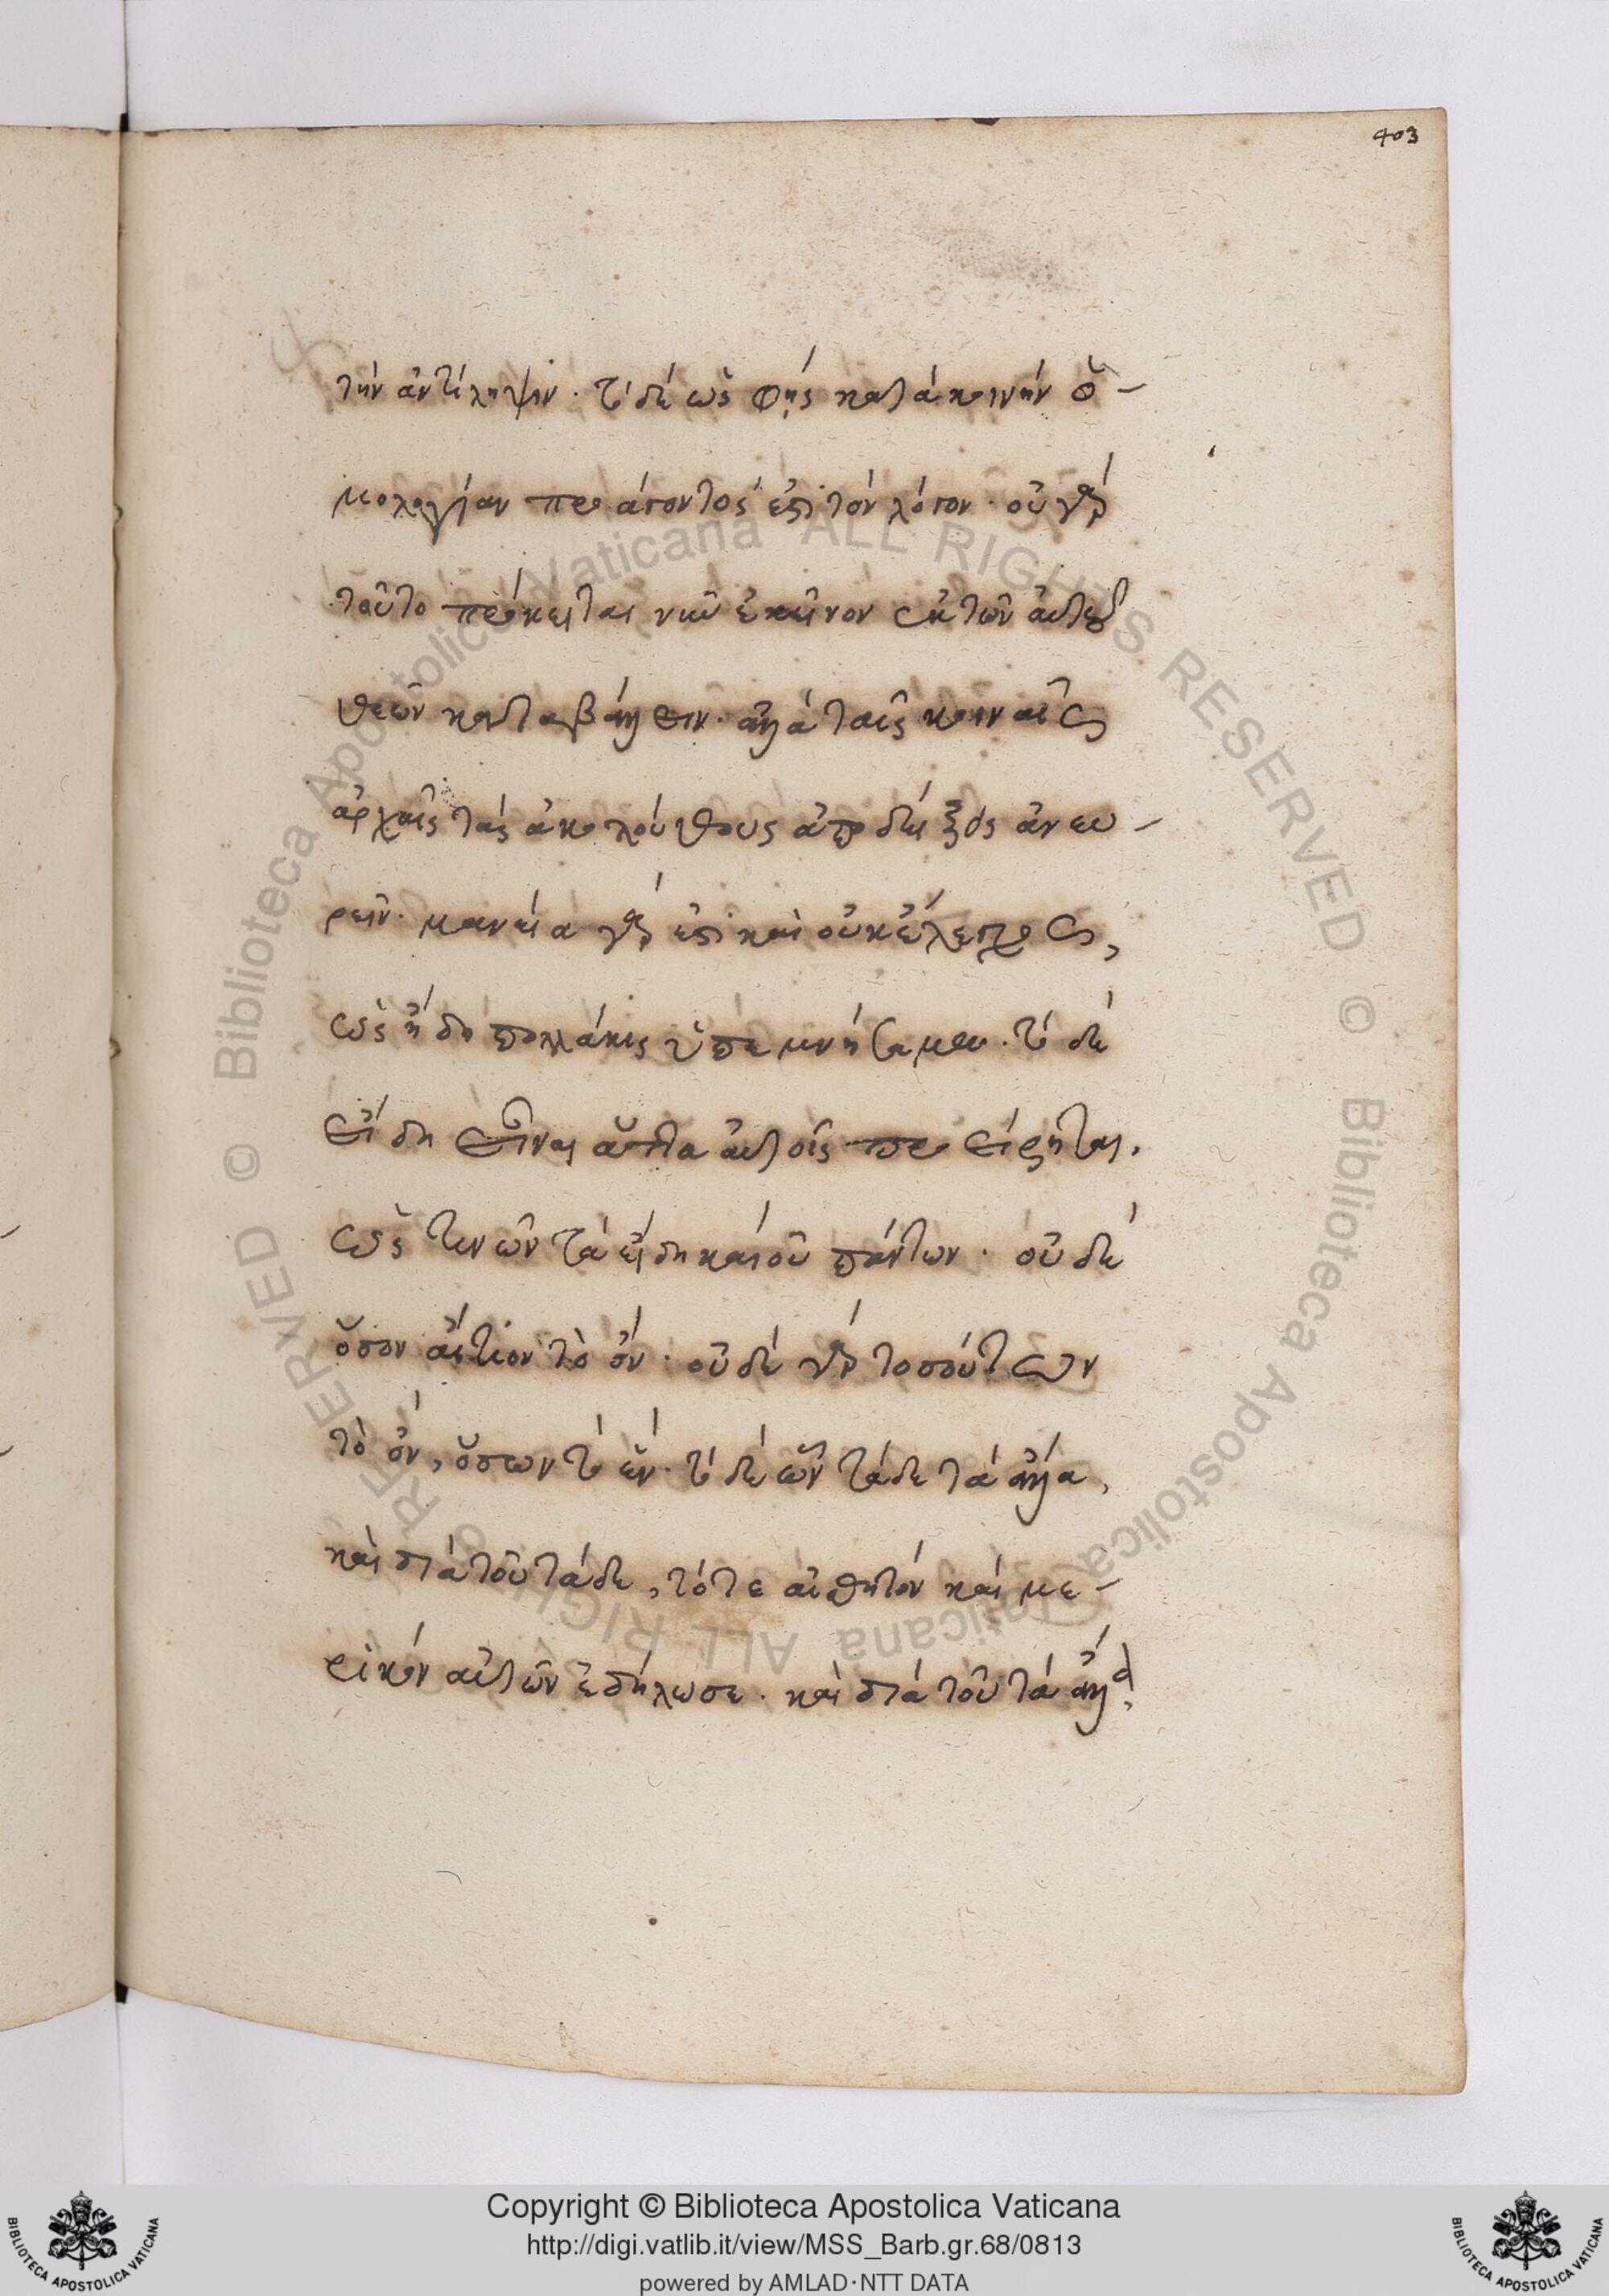 403
τὴν ἀντίληψιν. τὸ δὲ ὡς φῂς κατὰ κοινὴν ὁ-
μολογίαν προάγοντος ἐστὶ τὸν λόγον. οὐ γὰρ
τοῦτο πρόκειται νῦν ἐκεῖνον ἐκ τῶν αὐτῷ
καταβάλλειν. ἀλλὰ ταῖς κοιναῖς
ἀρχαῖς τὰς ἀκολούθους ἀποδείξεις ἀνευ-
ρεῖν. μανεία γὰρ ἐστὶ καὶ οὐκ ἔλεγχος,
ὡς ἤδη πολλάκις ὑπεμνήσαμεν. τὸ δὲ
εἴδη εἶναι ἄττα αὐτοῖς προείρηται.
ὡς τινῶν τὰ εἴδη καὶ οὐ πάντων. οὐδὲ
ὅσον αἴτιον τὸ ὄν. οὐδὲ γὰρ τοσούτων
τὸ ὄν, ὅσων τὸ ἕν. τὸ δὲ ὧν τάδε τὰ ἄλλα,
καὶ διὰ τοῦ τάδε, τό τε αἰσθητὸν καὶ με-
ρικὸν αὐτῶν ἐδήλωσε. καὶ διὰ τοῦ τὰ ἄλλα,
Copyright © Biblioteca Apostolica Vaticana
http://digi.vatlib.it/view/MSS_Barb.gr.68/0813
powered by AMLAD·NTT DATA
BIBLIOTECA APOSTOLICA VATICANA
BIBLIOTECA APOSTOLICA VATICANA
© Biblioteca Apostolica Vaticana ALL RIGHTS RESERVED © Biblioteca Apostolica Vaticana ALL RIGHTS RESERVED